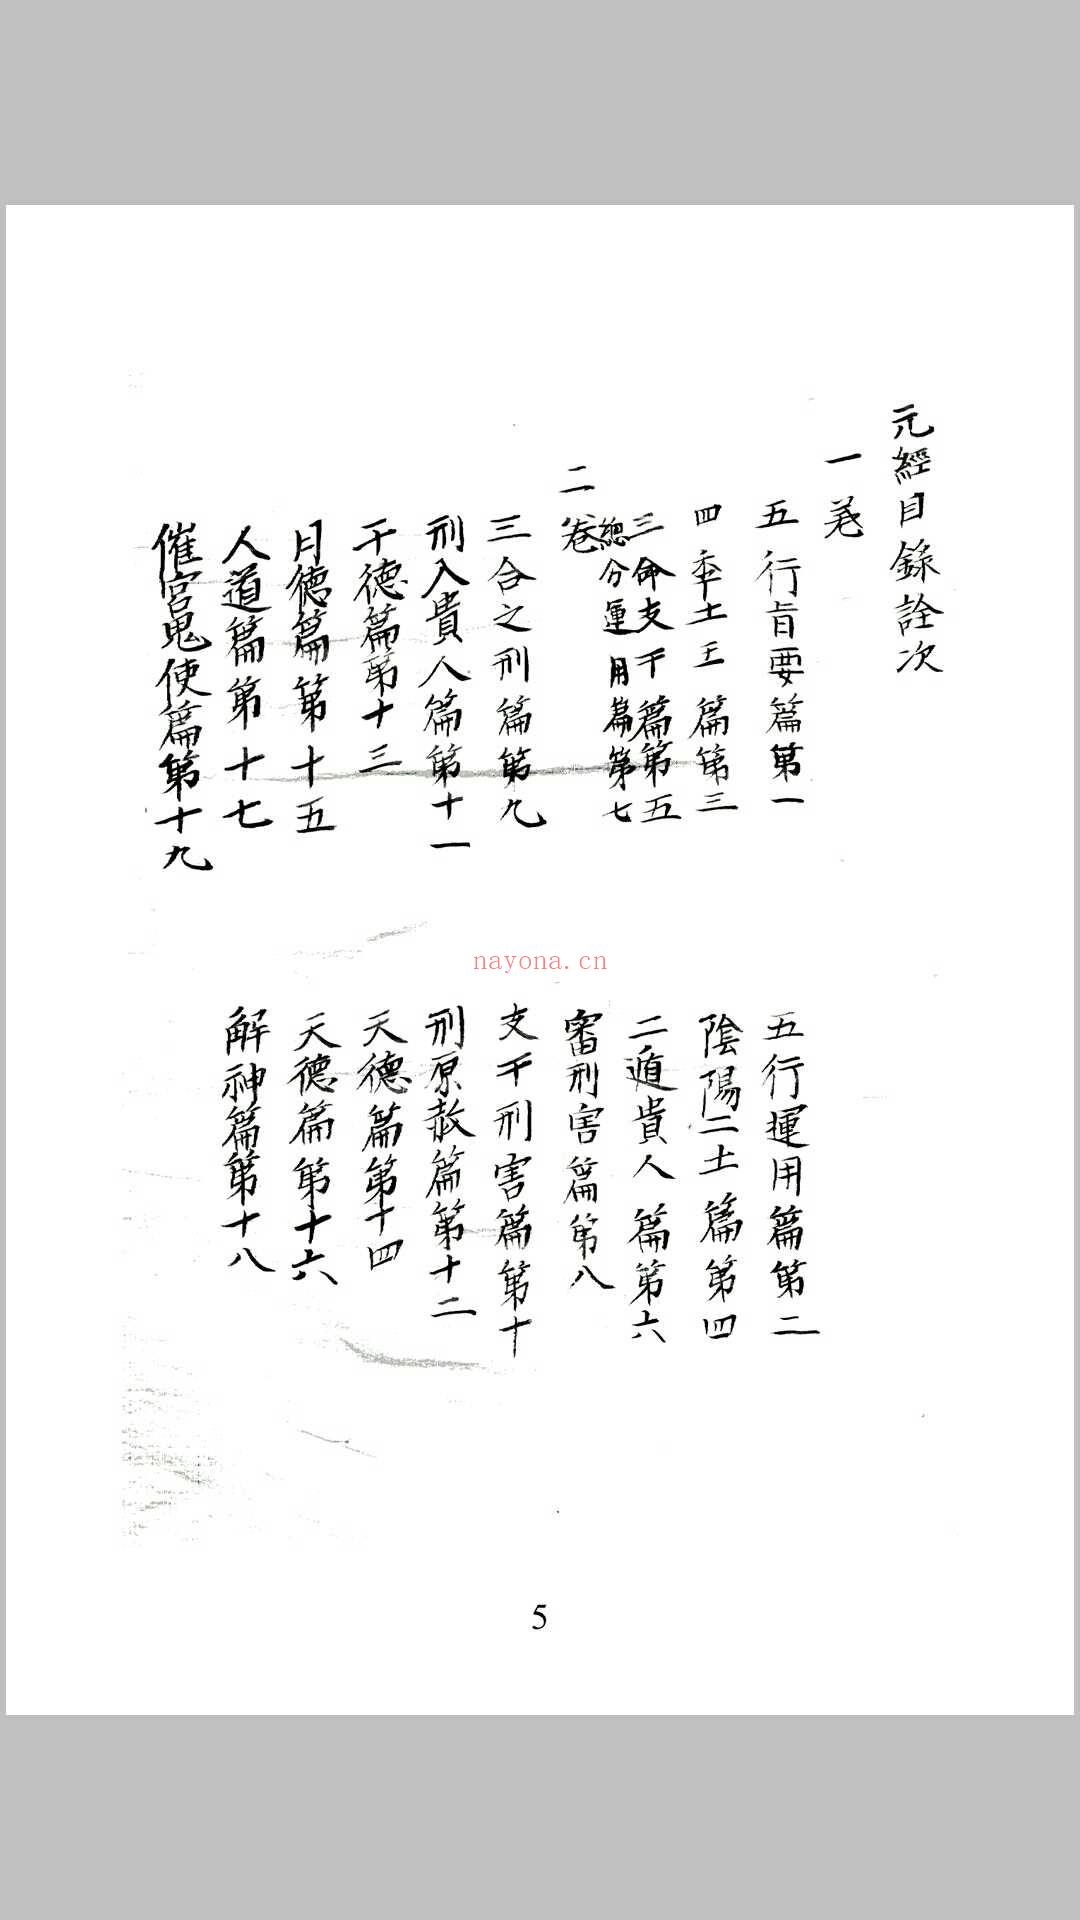 元經目錄詮次
一卷
五行旨要篇第一
五行運用篇第二
四季土王篇第三
陰陽二土篇第四
三命支干篇第五
二遁貴人篇第六
總分運用篇第七
審刑害篇第八
二卷
三合之刑篇第九
支干刑害篇第十
刑入貴人篇第十一
刑原赦篇第十二
干德篇第十三
天德篇第十四
月德篇第十五
天德篇第十六
人道篇第十七
解神篇第十八
催官鬼使篇第十九
nayona.cn
5